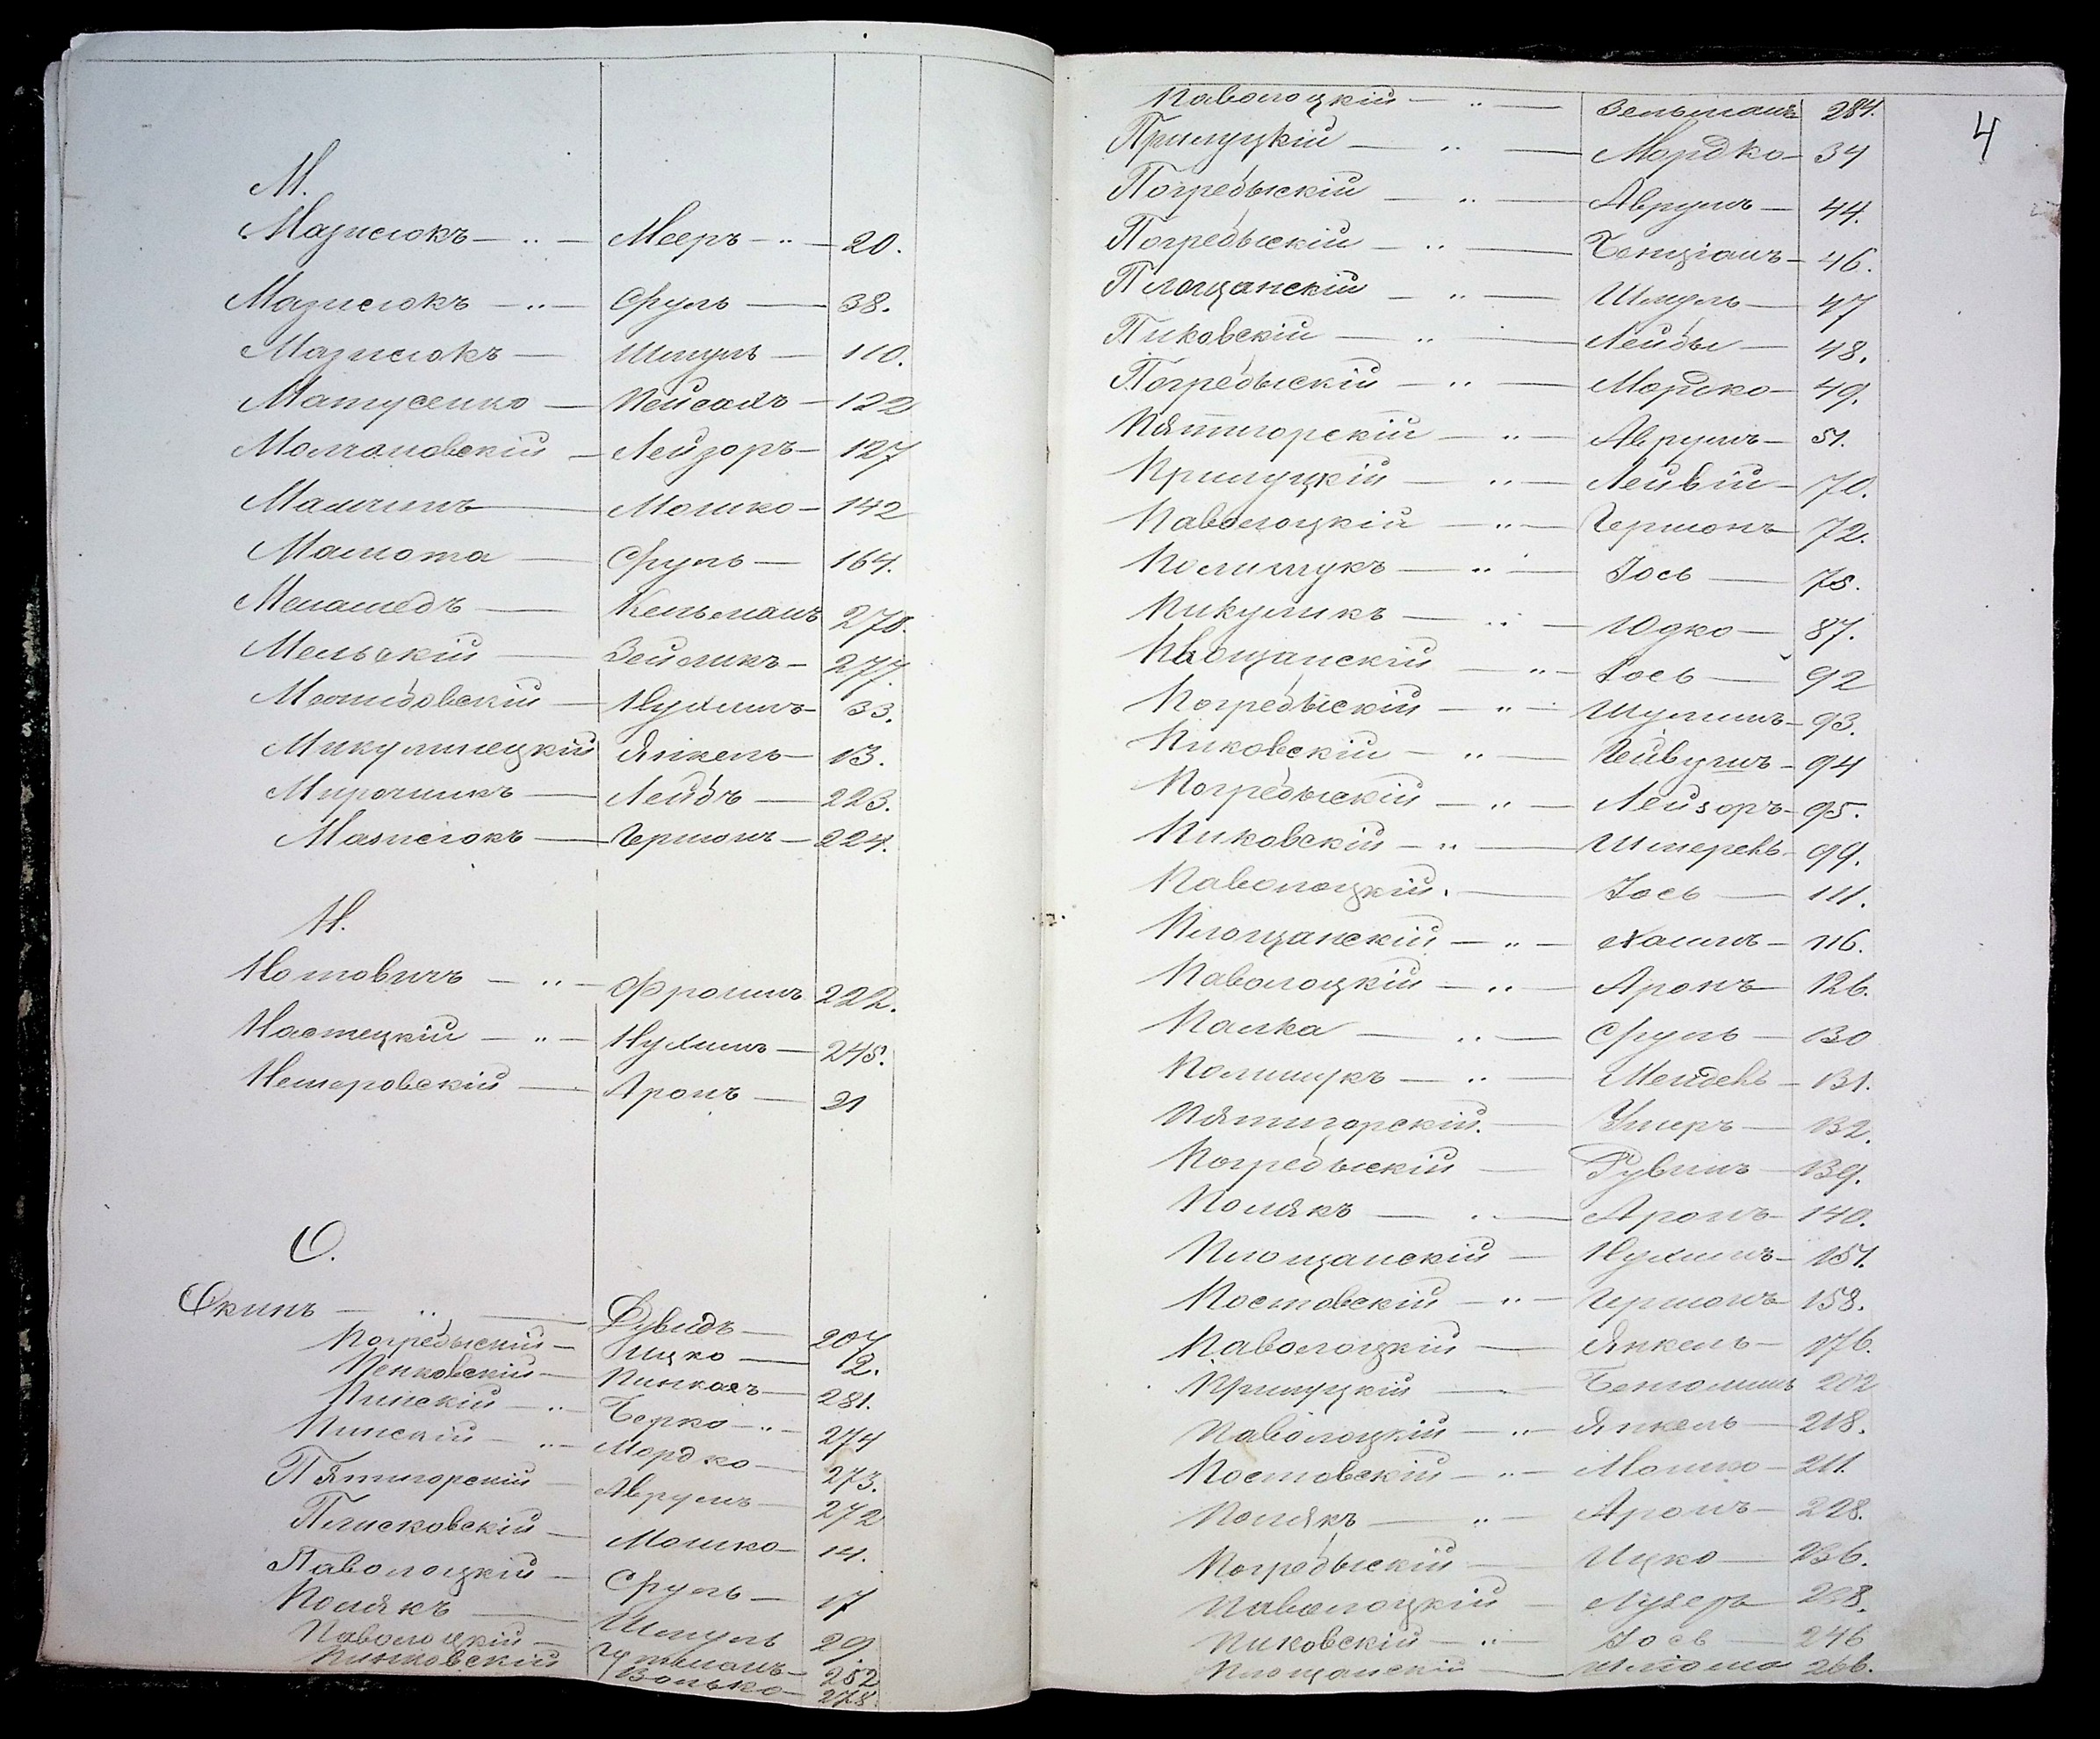 М.
Мазнеюкъ — „ — Мееръ — „ — 20.
Мазнеюкъ — „ — Сруль — 38.
Мазнеюкъ — Шмуль — 110.
Матусенко — Пейсахъ — 122
Молчановскій — Лейзоръ — 127
Мошко — 142
Сруль — 164.
Меламедъ — Кельманъ 270.
Мельскій — Зейликъ — 277.
Нухимъ — 33.
Микулинецкій Янкель — 13.
Мирочникъ — Лейбъ — 223.
Мазнеюкъ — Гершонъ — 224.
Н.
Нотовичъ — „ — Фроимъ 222.
Настецкій — „ — Нухимъ — 245.
Нещеровскій — Аронъ — 21
О.
Окинь — „ — Дувидъ — 207
Погребыскій — Ицко — 12.
Пенковскій — Пинкасъ — 281.
Пинскій — „ — Берко — „ — 274
Пинскій — „ — Мордко — 273.
Пятигорскій — Аврумъ — 272
Плисковскій — Мошко — 14.
Паволоцкій — Сруль — 17
Полякъ — Шмуль 29.
Паволоцкій — 252
Волько — 278.
4
Паволоцкій — „ — Зельманъ 284.
Прилуцкій — „ — Мордко — 34
Погребыскій — „ — Аврумъ — 44.
Погребыскій — „ — Бенціанъ — 46.
Площанскій — „ — Шмуль — 47
Пиковскій — „ — Лейбы — 48.
Погребыскій — „ — Мордко — 49.
Пятигорскій — „ — Аврумъ — 51.
Прилуцкій — „ — Лейвій — 70.
Паволоцкій — „ — Гершонъ — 72.
Полищукъ — „ — Іось — 75.
Пикуликъ — „ — Юдко — 87.
Площанскій — „ — Іось — 92
Погребыскій — „ — Шулимъ — 93.
Пиковскій — „ — Лейвушъ — 94
Погребыскій — „ — Лейзоръ — 95.
Пиковскій — „ — Шмерель 99.
Паволоцкій. — Іось — 111.
Площанскій — „ — Хаимъ — 116.
Паволоцкій — „ — Аронъ — 126.
Палка — „ — Сруль — 130
Полищукъ — „ — Мендель — 131.
Пятигорскій. — Ушеръ — 132.
Погребыскій — Рувинъ — 139.
Полякъ — „ — Аронъ — 140.
Площанскій — Нухимъ — 151.
Постовскій — „ — Гершонъ 158.
Паволоцкій — Янкель — 176.
Прилуцкій — Бенюминъ 202
Паволоцкій — „ — Янкель — 218.
Постовскій — „ — Мошко — 211.
Полякъ — „ — Аронъ — 228.
Погребыскій — Ицко — 236.
Паволоцкій — Лузеръ 238.
Пиковскій — „ — Іось — 246
Площанскій — Шлёма 266.